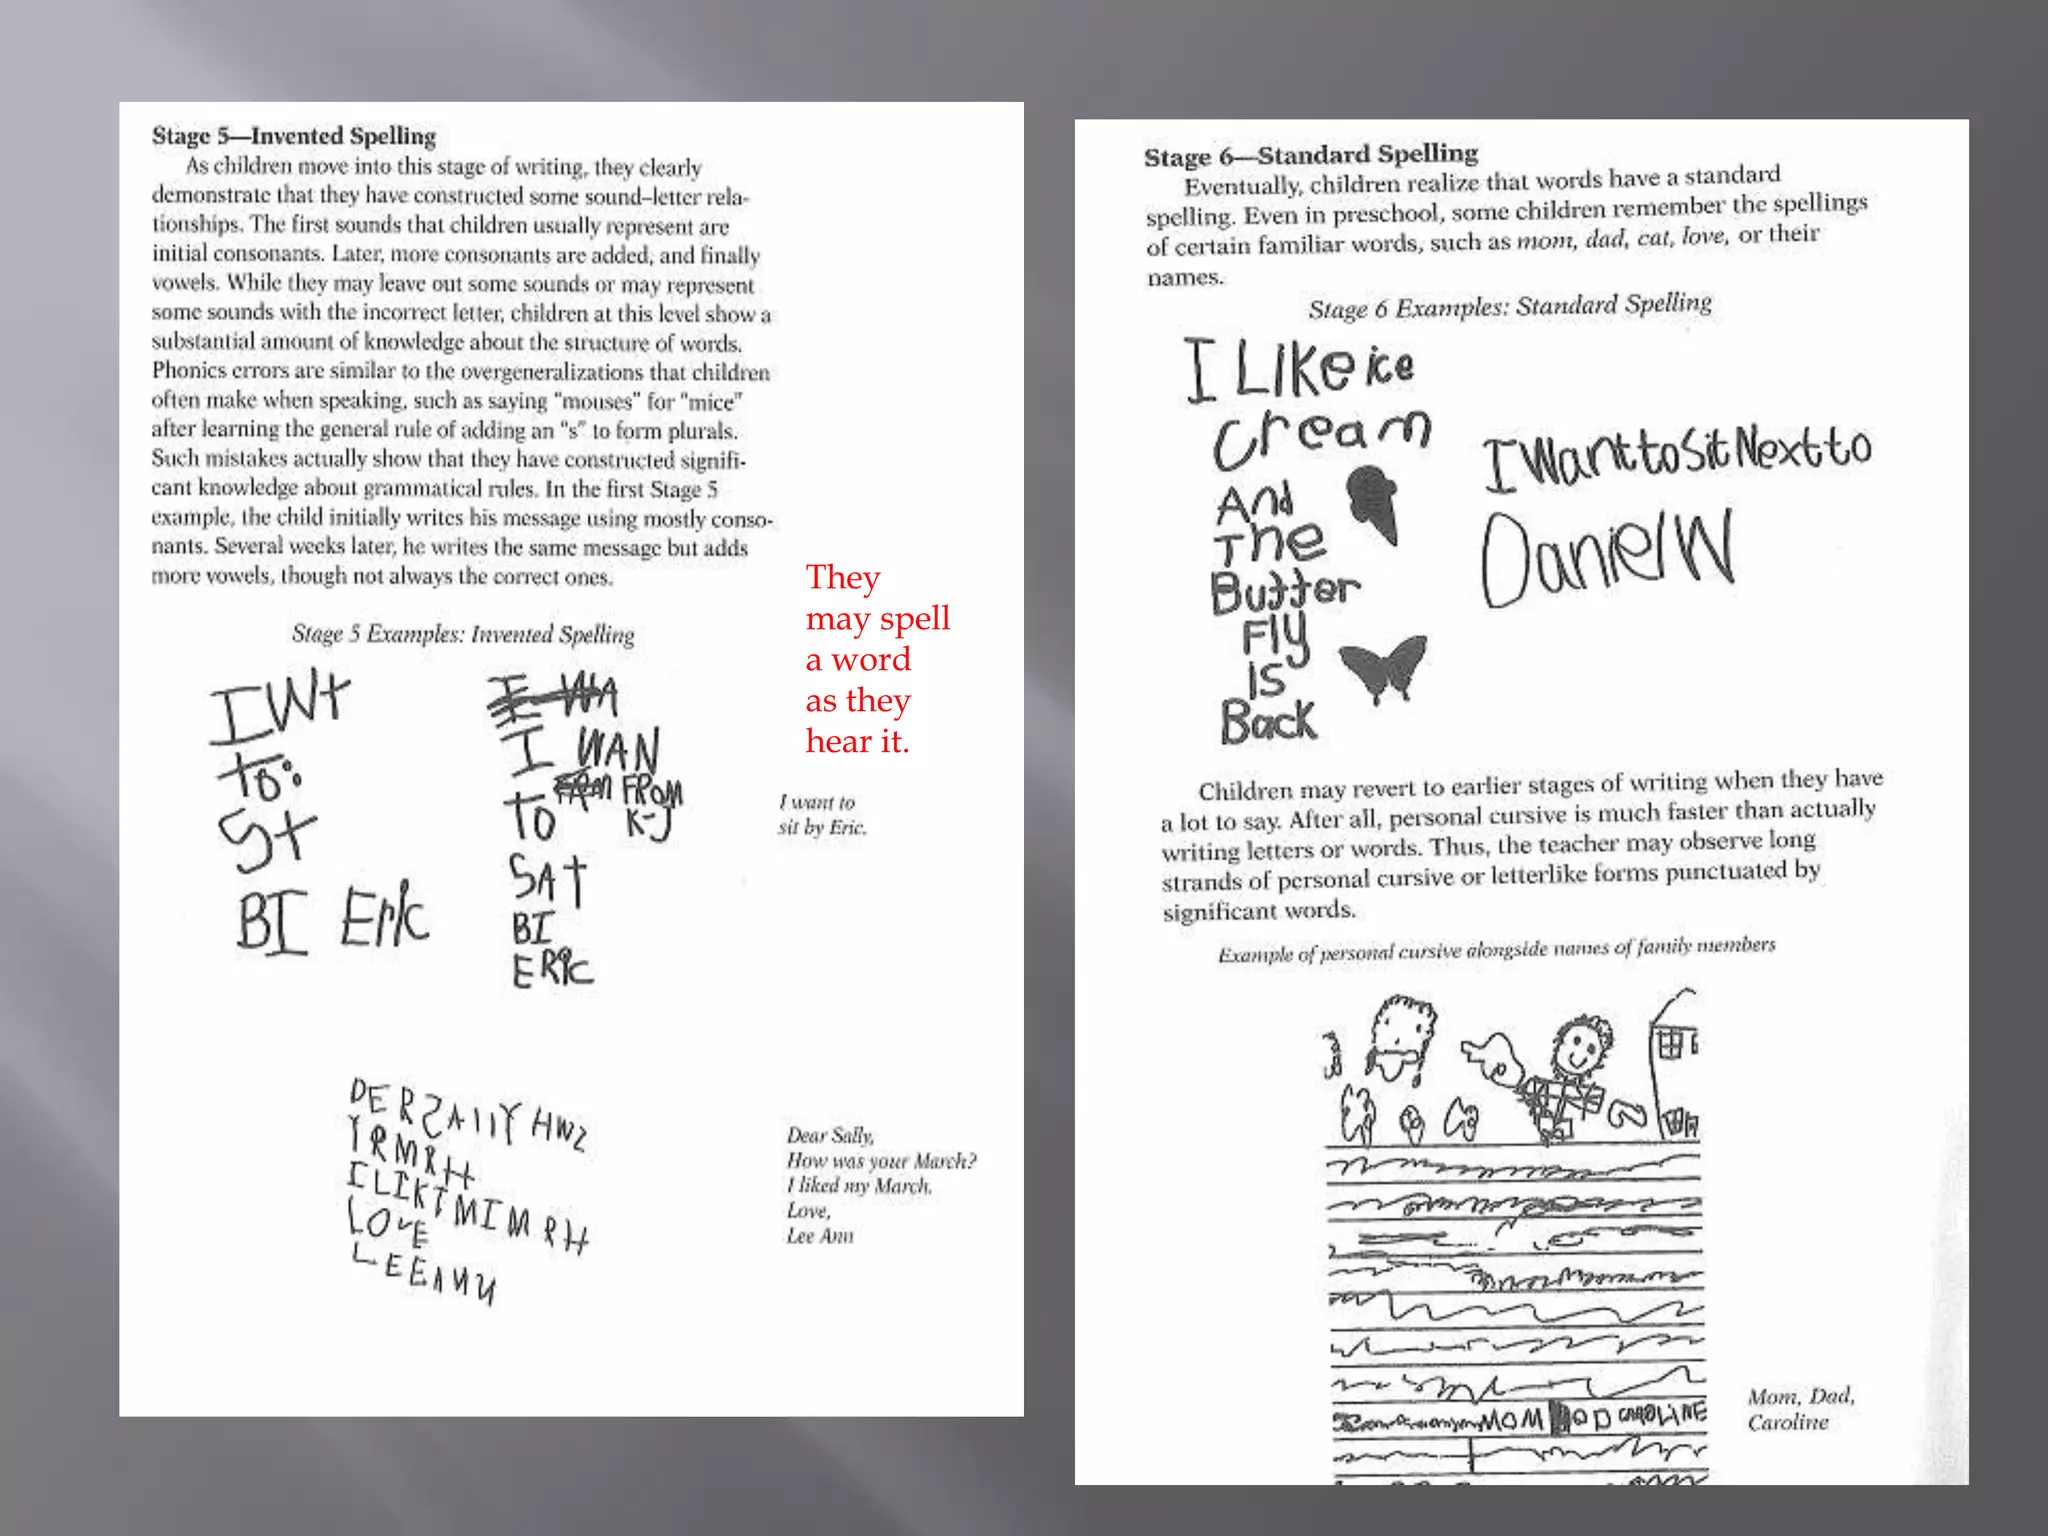 Stage 5—Invented Spelling
As children move into this stage of writing, they clearly
demonstrate that they have constructed some sound–letter rela-
tionships. The first sounds that children usually represent are
initial consonants. Later, more consonants are added, and finally
vowels. While they may leave out some sounds or may represent
some sounds with the incorrect letter, children at this level show a
substantial amount of knowledge about the structure of words.
Phonics errors are similar to the overgeneralizations that children
often make when speaking, such as saying "mouses" for "mice"
after learning the general rule of adding an "s" to form plurals.
Such mistakes actually show that they have constructed signifi-
cant knowledge about grammatical rules. In the first Stage 5
example, the child initially writes his message using mostly conso-
nants. Several weeks later, he writes the same message but adds
more vowels, though not always the correct ones.
They
may spell
a word
as they
hear it.
Stage 5 Examples: Invented Spelling
I Wt
to:
St
BI Eric
I WAN
TO FROM
K-J
SAT
BI
ERIC
I want to
sit by Eric.
DERSALLY HWZ
YRMRH
I LIKT MI MRH
LOVE
LEEANN
Dear Sally,
How was your March?
I liked my March.
Love,
Lee Ann
Stage 6—Standard Spelling
Eventually, children realize that words have a standard
spelling. Even in preschool, some children remember the spellings
of certain familiar words, such as mom, dad, cat, love, or their
names.
Stage 6 Examples: Standard Spelling
I Like ice
cream
And
The
Butter
Fly
IS
Back
I Want to Sit Next to
Daniel W
Children may revert to earlier stages of writing when they have
a lot to say. After all, personal cursive is much faster than actually
writing letters or words. Thus, the teacher may observe long
strands of personal cursive or letterlike forms punctuated by
significant words.
Example of personal cursive alongside names of family members
MOM DOD CAROLINE
Mom, Dad,
Caroline